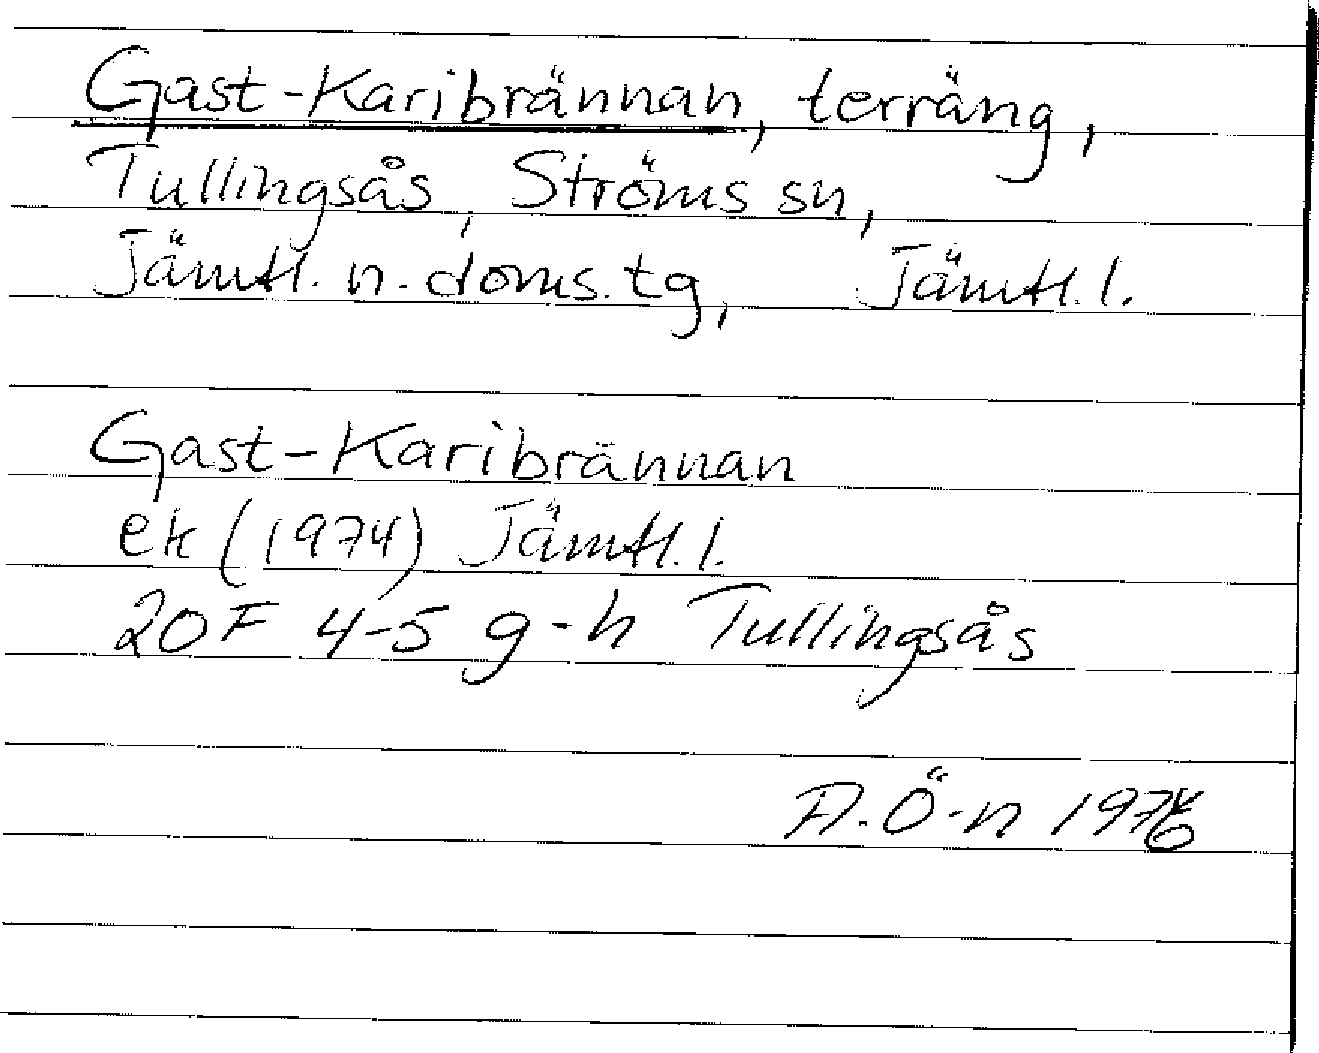 Gast-Karibrännan, terräng,
Tullingsås, Ströms sn,
Jämtl. n. doms. tg, Jämtl. l.
Gast-Karibrännan
ek (1974) Jämtl. l.
20F 4-5 g-h Tullingsås
A. Ö-n 1976